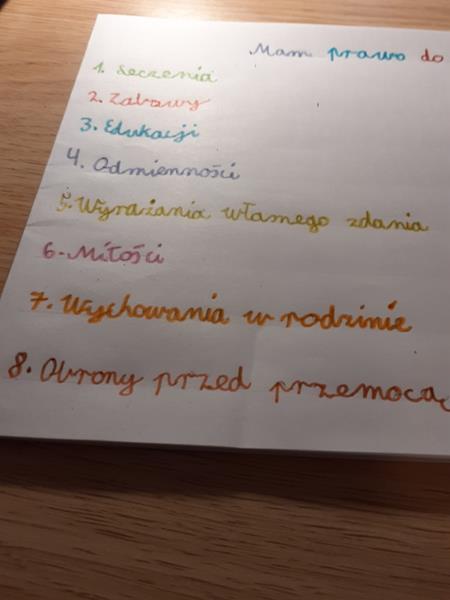 Mam prawo do
1. Leczenia
2. Zabawy
3. Edukacji
4. Odmienności
5. Wyrażania własnego zdania
6. Miłości
7. Wychowania w rodzinie
8. Obrony przed przemocą